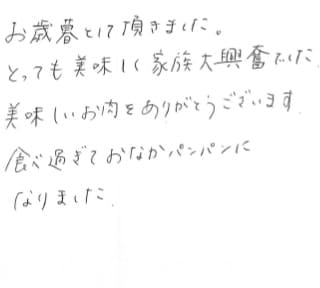 お歳暮として頂きました。
とっても美味しく家族大興奮でした.
美味しいお肉をありがとうございます.
食べ過ぎておなかパンパンに
なりました.